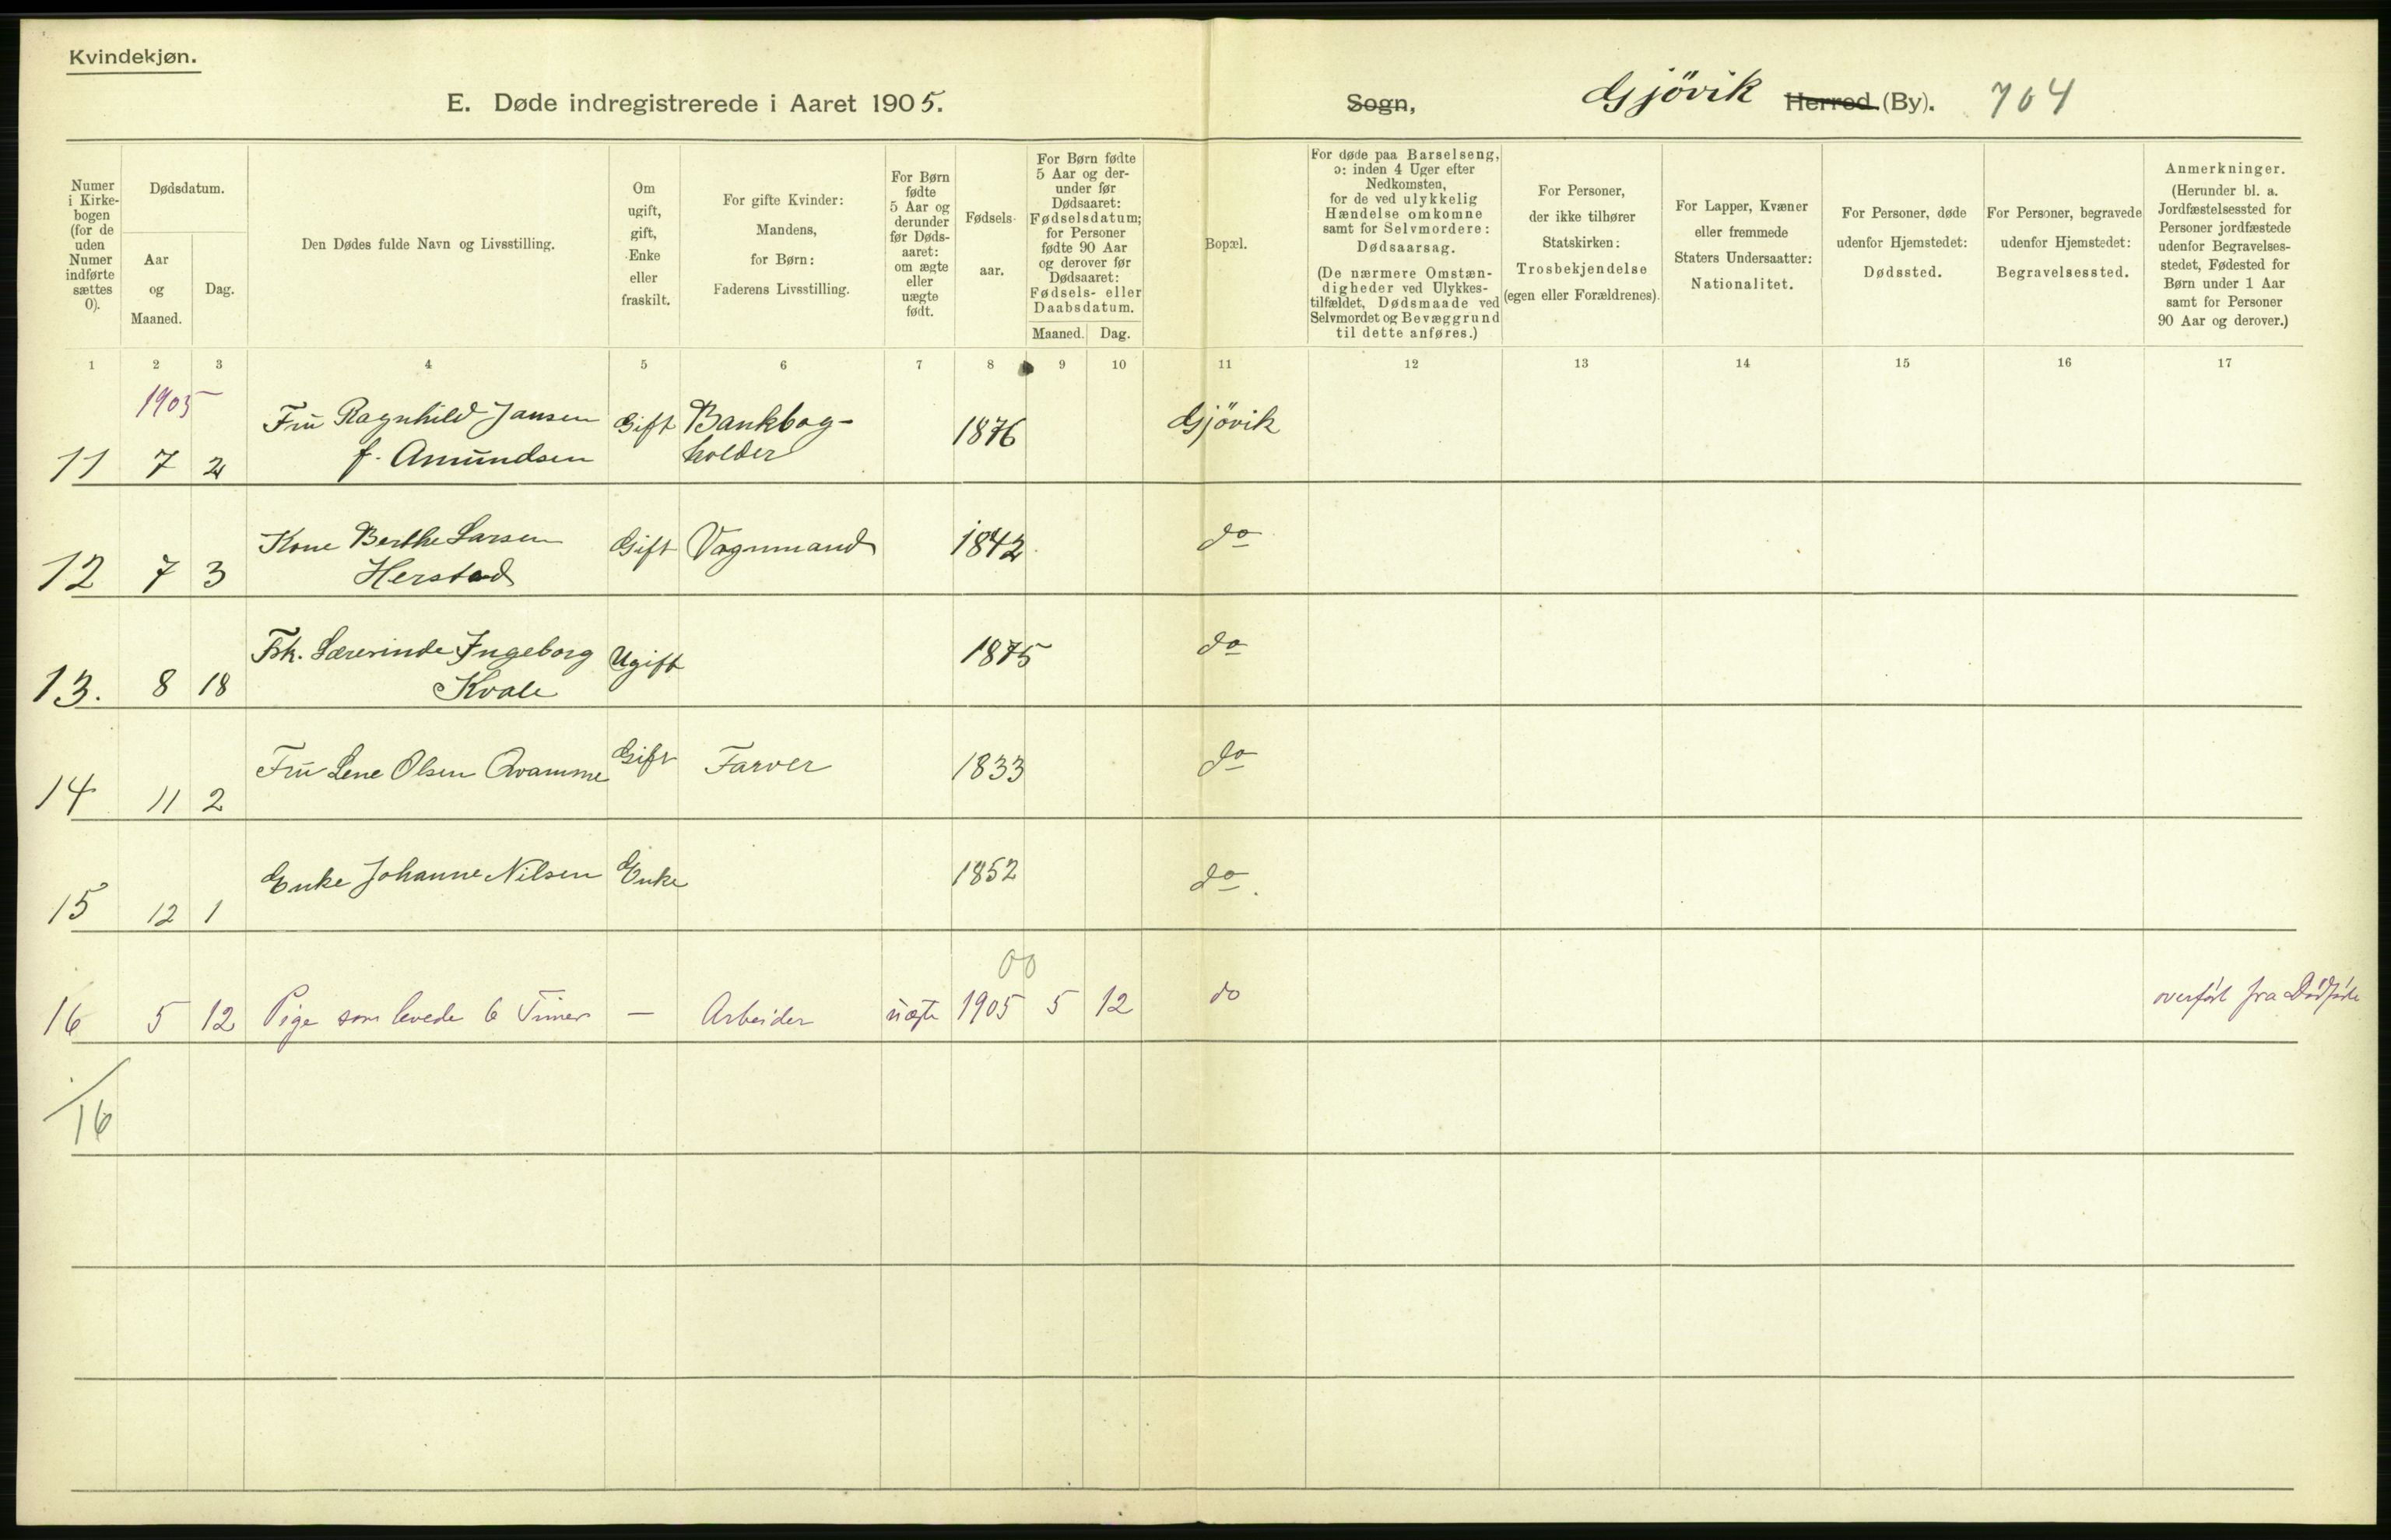 Kvindekjøn.
E. Døde indregistrerede i Aaret 1905.
Sogn, Gjövik Herred (By). 704
Numer
i Kirke-
bogen
(for de
uden
Numer
indførte
sættes
0).
Dødsdatum.
Aar
og
Maaned.
Dag.
Den Dødes fulde Navn og Livsstilling.
Om
ugift,
gift,
Enke
eller
fraskilt.
For gifte Kvinder:
Mandens,
for Børn:
Faderens Livsstilling.
For Børn
fødte
5 Aar og
derunder
før Døds-
aaret:
om ægte
eller
uægte
født.
Fødsels-
aar.
For Børn fødte
5 Aar og der-
under før
Dødsaaret:
Fødselsdatum;
for Personer
fødte 90 Aar
og derover før
Dødsaaret:
Fødsels- eller
Daabsdatum.
Maaned. Dag.
Bopæl.
For døde paa Barselseng,
ɔ: inden 4 Uger efter
Nedkomsten,
for de ved ulykkelig
Hændelse omkomne
samt for Selvmordere:
Dødsaarsag.
(De nærmere Omstæn-
digheder ved Ulykkes-
tilfældet, Dødsmaade ved
Selvmordet og Bevæggrund
til dette anføres.)
For Personer,
der ikke tilhører
Statskirken:
Trosbekjendelse
(egen eller Forældrenes).
For Lapper, Kvæner
eller fremmede
Staters Undersaatter:
Nationalitet.
For Personer, døde
udenfor Hjemstedet:
Dødssted.
For Personer, begravede
udenfor Hjemstedet:
Begravelsessted.
Anmerkninger.
(Herunder bl. a.
Jordfæstelsessted for
Personer jordfæstede
udenfor Begravelses-
stedet, Fødested for
Børn under 1 Aar
samt for Personer
90 Aar og derover.)
1 2 3 4 5 6 7 8 9 10 11 12 13 14 15 16 17
1905
Fru Ragnhild Jansen Gift Bankbog- 1876 Gjövik
11 7 2 f. Amundsen holder
Kone Berthe Larsen Gift Vognmand 1842 do
12 7 3 Herstad
Fhk. Lærerinde Ingeborg Ugift 1875 do
13. 8 18 Kvale
Fru Lene Olsen Qvamme Gift Farver 1833 do
14 11 2
Enke Johanne Nilsen Enke 1852 do.
15 12 1
00
16 5 12 Pige som levede 6 Timer — Arbeider uægte 1905 5 12 do overført fra Dødfødte
16